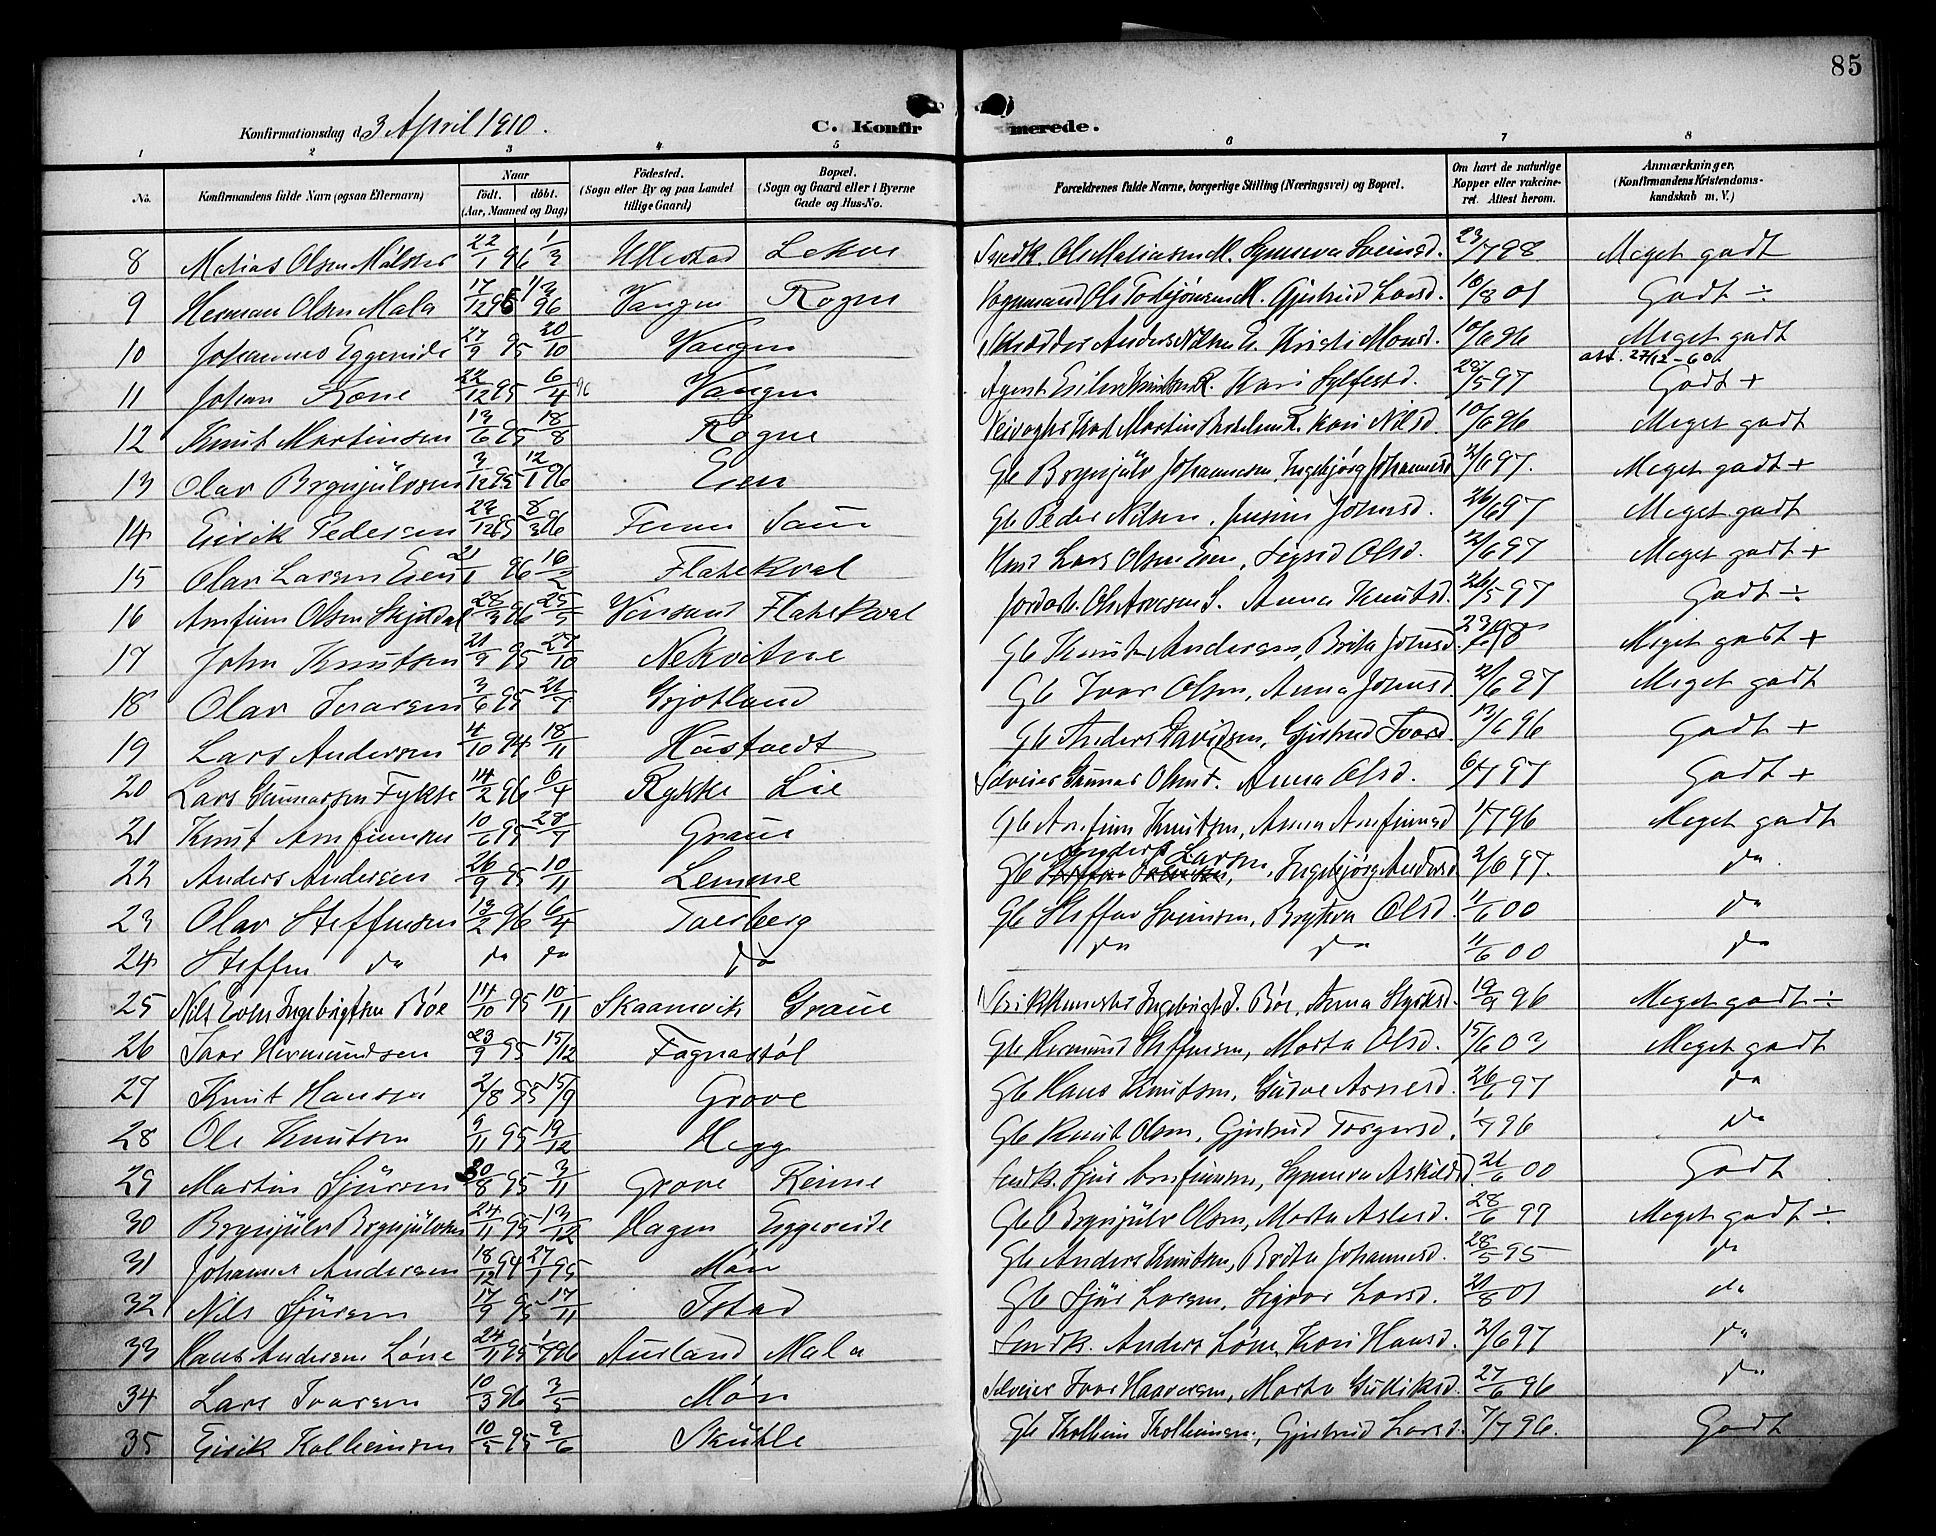 85
Konfirmationsdag d. 3 April 1910.
C. Konfirmerede.
1 2 3 4 5 6 7 8
No. Konfirmandens fulde Navn (ogsaa Efternavn) Naar født. døbt. (Aar, Maaned og Dag) Fødested. (Sogn eller By og paa Landet tillige Gaard) Bopæl. (Sogn og Gaard eller i Byerne Gade og Hus-No. Forældrenes fulde Navne, borgerlige Stilling (Næringsvei) og Bopæl. Om havt de naturlige Kopper eller vakcineret. Attest herom. Anmærkninger, (Konfirmandens Kristendomskundskab m. V.)
8 Matias Olsen 22/1 96 1/3 Ullestad Lekve Ole Matiasen M. Synneva Sveinsd. 23/7 98 Meget godt
9 Herman Olsen Mala 17/12 95 1/3 96 Vangen Rogne Ole Torbjørnsen M. Gjertrud Larsd. 10/8 01 Godt ÷
10 Johannes Eggereide 27/9 95 20/10 Vangen Skrædder Anders Nilsen E. Kristi Monsd. 10/6 96 Meget godt
att. 27/12-60
11 Johan Rone 22/12 95 6/4 96 Vangen Agent Erik Knutsen R. Kari Sylfestd. 20/5 97 Godt +
12 Knut Martinsen 13/6 95 18/8 Rogne Kari Nilsd. 10/6 96 Meget godt
13 Olav Brynjülvsen 3/12 95 12/1 96 Eien Gb Brynjülv Johannesen, Ingebjørg Johannesd 2/6 97. Meget godt +
14 Eirik Pedersen 22/12 95 8/3 96 Finne Saue Gb Peder Nilsen, Johnsd. 26/6 97 Meget godt
15 Olav Larsen Eien 21/1 96 16/2 Flatekval Lars Olsen Eien, Sigrid Olsd. 2/6 97 Meget godt +
16 Arnfinn Olsen Skjeldal 28/3 96 25/5 Vinsand Flatekval Anna Knutsd. 26/5 97 Godt ÷
17 John Knutsen 21/9 95 27/10 Nekvitne Gb Knut Andersen, Brita Johnsd. Meget godt +
18 Olav Ivarsen 3/6 95 21/7 Grjotland Gb Ivar Olsen, Anna Johnsd 2/6 97 Meget godt
19 Lars Andersen 4/10 94 18/11 Hustvedt Gb Anders Davidsen, Gjertrud Ivarsd. 13/6 96 Godt +
20 Lars Gunnarsen Fykse 14/2 96 6/4 Rykke Lie Selveier Gunnar Olsen F. Anna Olsd. 6/7 97 Godt +
21 Knut Arnfinnsen 10/6 95 28/7 Graue Gb Arnfinn Knutsen, Anna Arnfinnsd 1/7 96 Meget godt
22 Anders Andersen 26/9 95 10/11 Lemme Gb Anders Larsen, Ingebjørg Andersd 2/6 97. do
23 Olav Steffensen 13/2 96 6/4 Tverberg Gb Steffen Sveinsen, Bryteva Olsd. 11/6 00 do
24 Steffen do do do do do do 11/6 00 do
25 Nils Ingebrigtsen Bøe 14/10 95 10/11 Skaanevik Graue Ingebrigt J. Bøe, Anna Styrksd. 19/9 96 Meget godt ÷
26 Ivar Hermundsen 23/9 95 15/12 Fagnastøl Gb Hermund Steffensen, Marta Olsd. 15/6 03 Meget godt
27 Knut Hansen 2/8 95 15/9 Grove Gb Hans Knutsen, Gudve Arnesd. 26/6 97 do
28 Ole Knutsen 9/11 95 19/12 Hegg Gb Knut Olsen, Gjertrud Torgersd. 1/7 96 do
29 Martin Sjursen 30/8 95 3/11 Grove Reime Sjur Arnfinnsen, Synneva Askildsd. 21/6 00 Godt
30 Brynjülv Brynjülvsen 24/11 95 13/12 Hagen Eggereide Gb Brynjülv Olsen, Marta Aslesd. 28/6 99 Meget godt ÷
31 Johannes Andersen 18/12 94 27/1 95 Møn Gb Anders Knutsen, Brita Johannesd. 28/5 95 do
32 Nils Sjursen 17/9 95 17/11 Istad Gb Sjur Larsen, Sigvor Larsd. 21/8 01 do
33 Hans Andersen Løne 24/11 95 Aurland Mala Anders Løne, Kari Hansd. 2/6 97 do
34 Lars Ivarsen 10/3 96 3/5 Møn Selveier Ivar Haaversen, Marta Gulliksd. 27/6 96 do
35 Eirik Kolbeinsen 10/5 95 9/6 Skutle Gb Kolbein Kolbeinsen, Gjertrud Larsd. 7/7 96. Godt